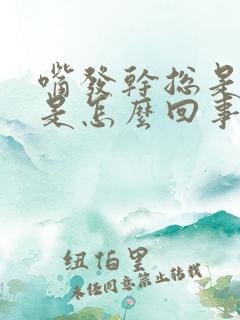 嘴發幹總是
是怎麼回事
紐伯里
未经同意禁止转载